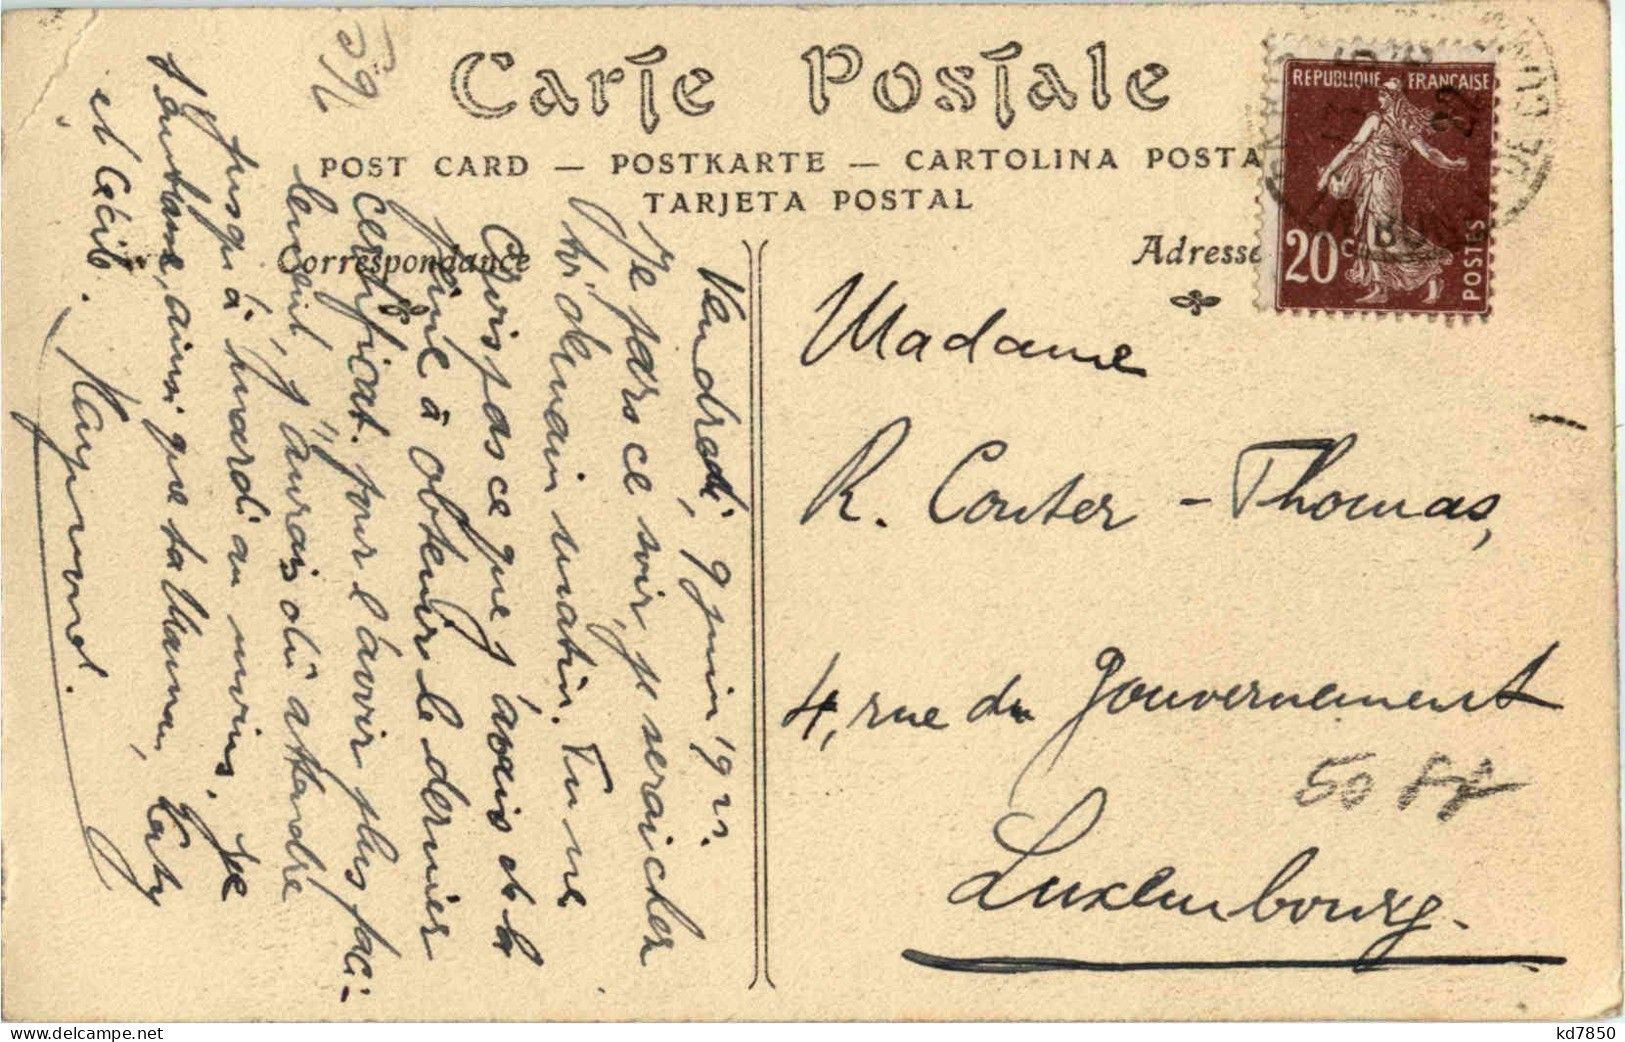 Carte Postale
POST CARD — POSTKARTE — CARTOLINA POSTA
TARJETA POSTAL
Correspondance
Adresse
REPUBLIQUE FRANÇAISE
20c
POSTES
Vendredi, 9 juin 1922.
Je pars ce soir, je serai chez
toi demain matin. Tu ne
crois pas ce que j'avais de la
peine à obtenir le dernier
certificat. Pour l'avoir plus faci-
lement, j'aurais dû attendre
jusqu'à mardi au moins. Je
t'embrasse, ainsi que ta Maman, Caty
et Cécile.
Raymond.
Madame
R. Conter-Thomas,
4, rue du Gouvernement
Luxembourg.
50
kd7850